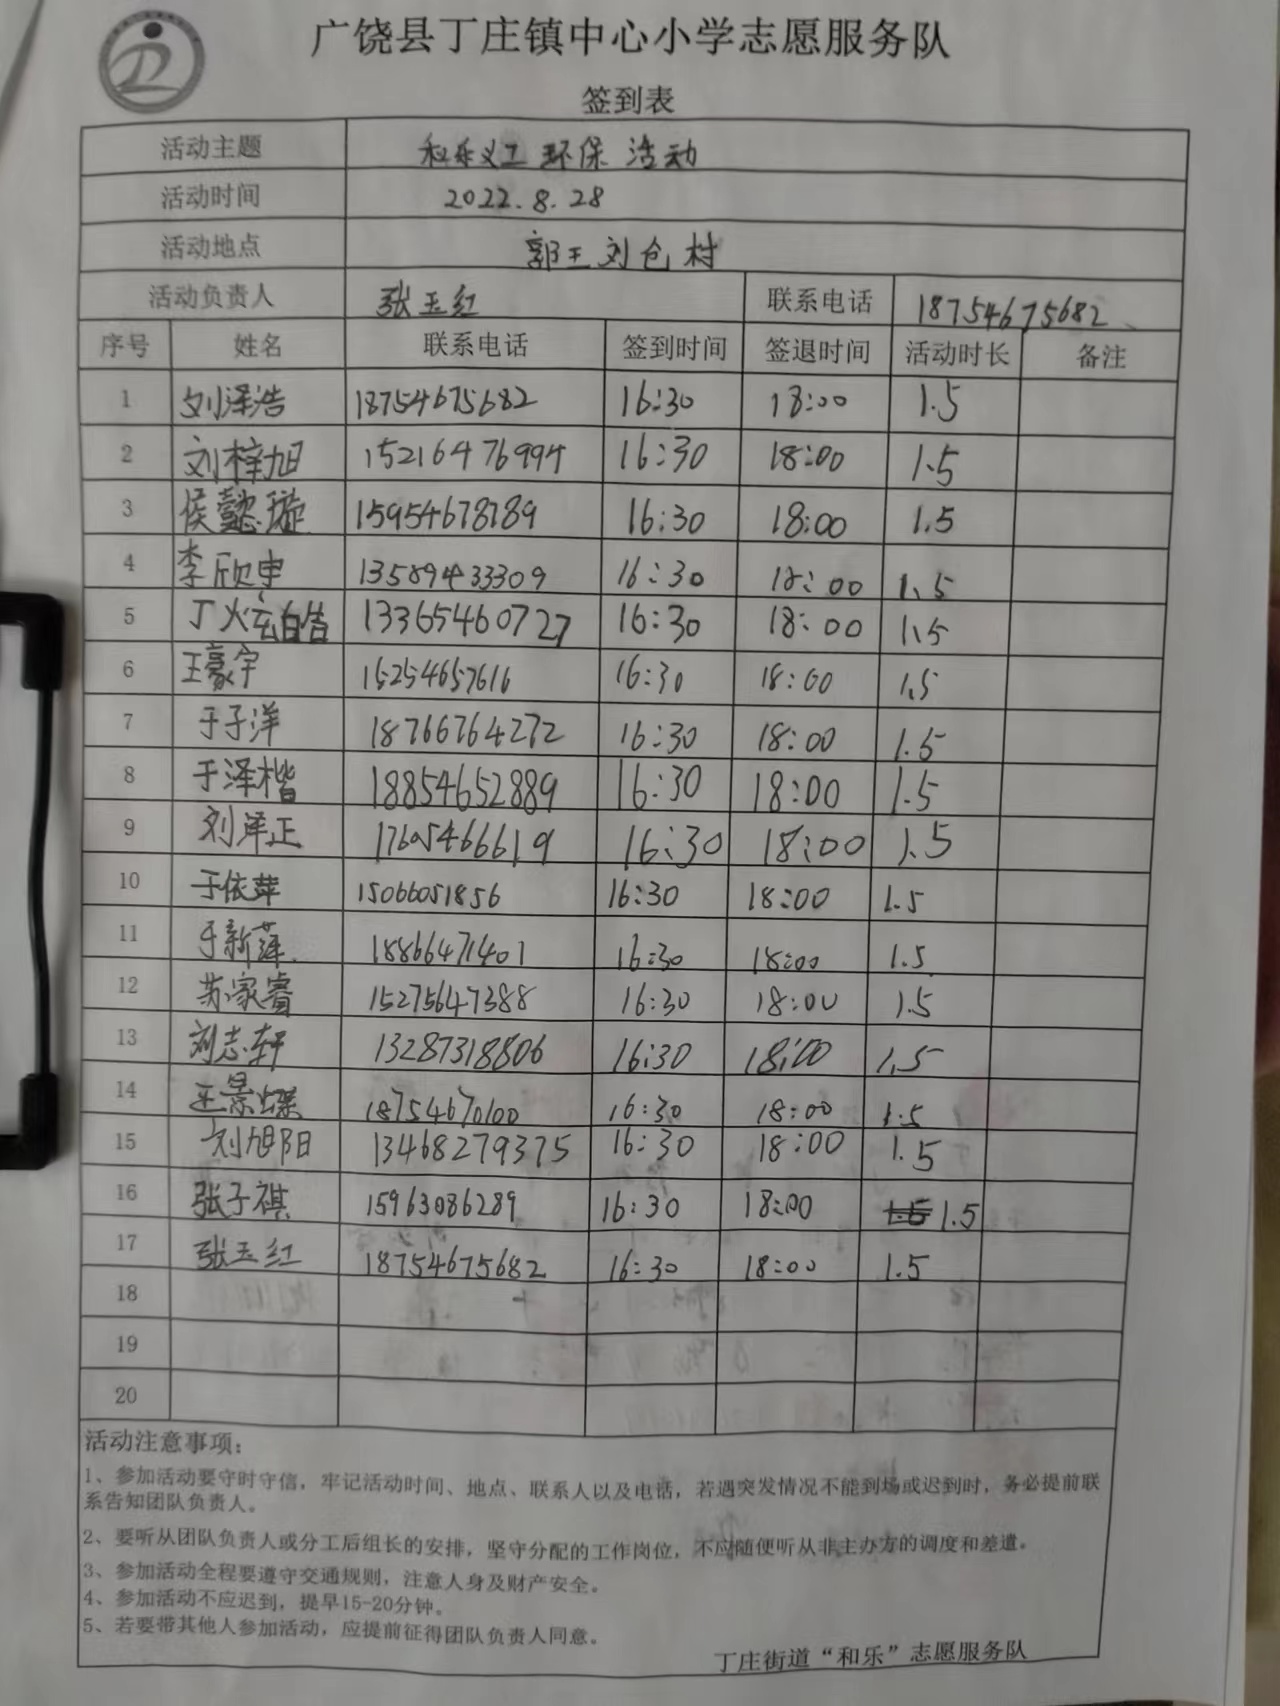 广饶县丁庄镇中心小学志愿服务队
签到表
活动主题 和乐义工 环保 活动
活动时间 2022.8.28
活动地点 郭王刘仓村
活动负责人 张玉红 联系电话 18754675682
序号 姓名 联系电话 签到时间 签退时间 活动时长 备注
1 刘泽浩 18754675682 16:30 18:00 1.5
2 刘梓旭 15216476994 16:30 18:00 1.5
3 侯懿璇 15954678789 16:30 18:00 1.5
4 李欣申 13589433309 16:30 18:00 1.5
5 丁炫皓 13365460727 16:30 18:00 1.5
6 王豪宇 15254657616 16:30 18:00 1.5
7 于子洋 18766764272 16:30 18:00 1.5
8 于泽楷 18854652889 16:30 18:00 1.5
9 刘泽正 17605466619 16:30 18:00 1.5
10 于依萍 15066051856 16:30 18:00 1.5
11 于新萍 18866471401 16:30 18:00 1.5
12 苏家睿 15275647388 16:30 18:00 1.5
13 刘志轩 13287318806 16:30 18:00 1.5
14 王景 18754670100 16:30 18:00 1.5
15 刘旭阳 13468279375 16:30 18:00 1.5
16 张子祺 15963086289 16:30 18:00 1.5 1.5
17 张玉红 18754675682 16:30 18:00 1.5
18
19
20
活动注意事项：
1、参加活动要守时守信，牢记活动时间、地点、联系人以及电话，若遇突发情况不能到场或迟到时，务必提前联
系告知团队负责人。
2、要听从团队负责人或分工后组长的安排，坚守分配的工作岗位，不应随便听从非主办方的调度和差遣。
3、参加活动全程要遵守交通规则，注意人身及财产安全。
4、参加活动不应迟到，提早15-20分钟。
5、若要带其他人参加活动，应提前征得团队负责人同意。
丁庄街道“和乐”志愿服务队